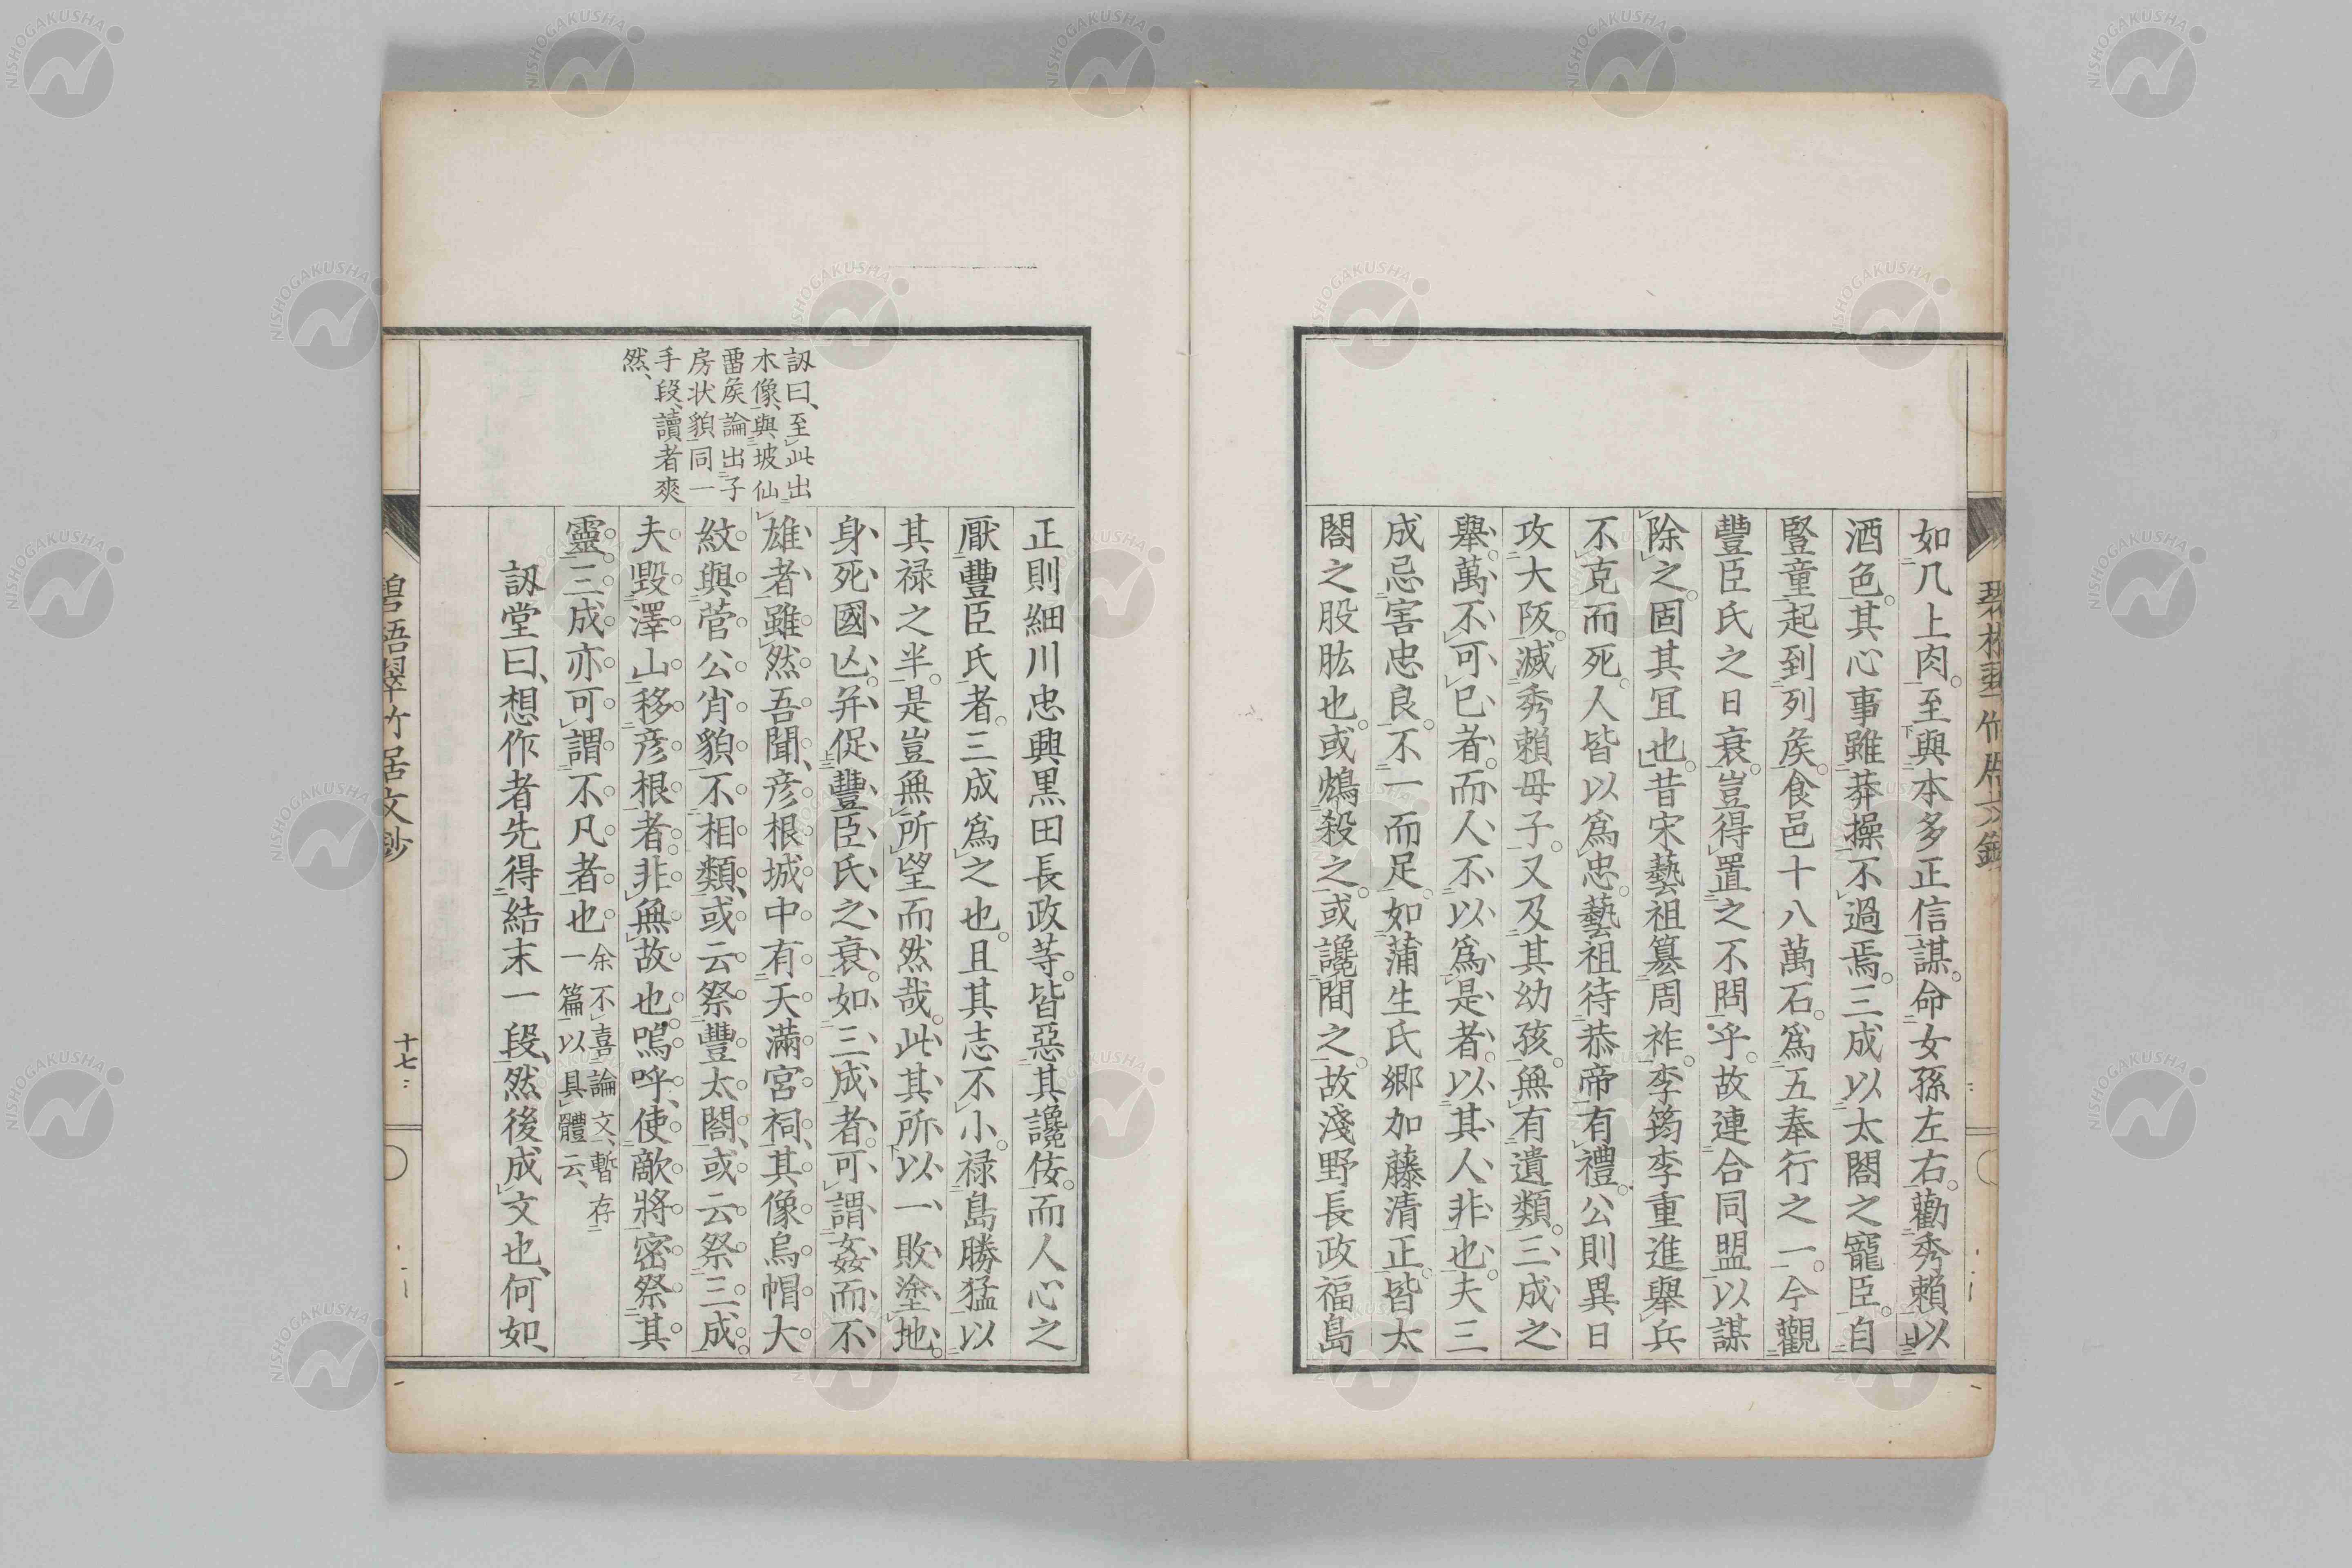 如几上肉至與本多正信謀命女孫左右勸秀賴以
酒色其心事雖莽操不過焉三成以太閤之寵臣自
豎童起到列矦食邑十八萬石爲五奉行之一今觀
豐臣氏之日衰豈得置之不問乎故連合同盟以謀
除之固其冝也昔宋藝祖簒周祚李筠李重進舉兵
不克而死人皆以爲忠藝祖待恭帝有禮公則異日
攻大阪滅秀賴母子又及其幼孩無有遺類三成之
舉萬不可已者而人不以爲是者以其人非也夫三
成忌害忠良不一而足如蒲生氏郷加藤清正皆太
閤之股肱也或鴆殺之或讒間之故淺野長政福島
正則細川忠興黒田長政等皆惡其讒佞而人心之
厭豐臣氏者三成爲之也且其志不小禄島勝猛以
其禄之半是豈無所望而然哉此其所以一敗塗地
身死國亾并促豐臣氏之衰如三成者可謂姦而不
雄者雖然吾聞彦根城中有天滿宮祠其像烏帽大
紋與菅公肖貌不相類或云祭豐太閤或云祭三成
夫毀澤山移彦根者非無故也嗚呼使敵將密祭其
靈三成亦可謂不凡者也
余不喜論文暫存
一篇以具體云、
訒堂曰、想作者先得結末一段、然後成文也、何如、
訒曰、至此出
木像、與坡仙
畱矦論出子
房状貌同一
手段、讀者爽
然、
碧梧翠竹居文鈔
十七